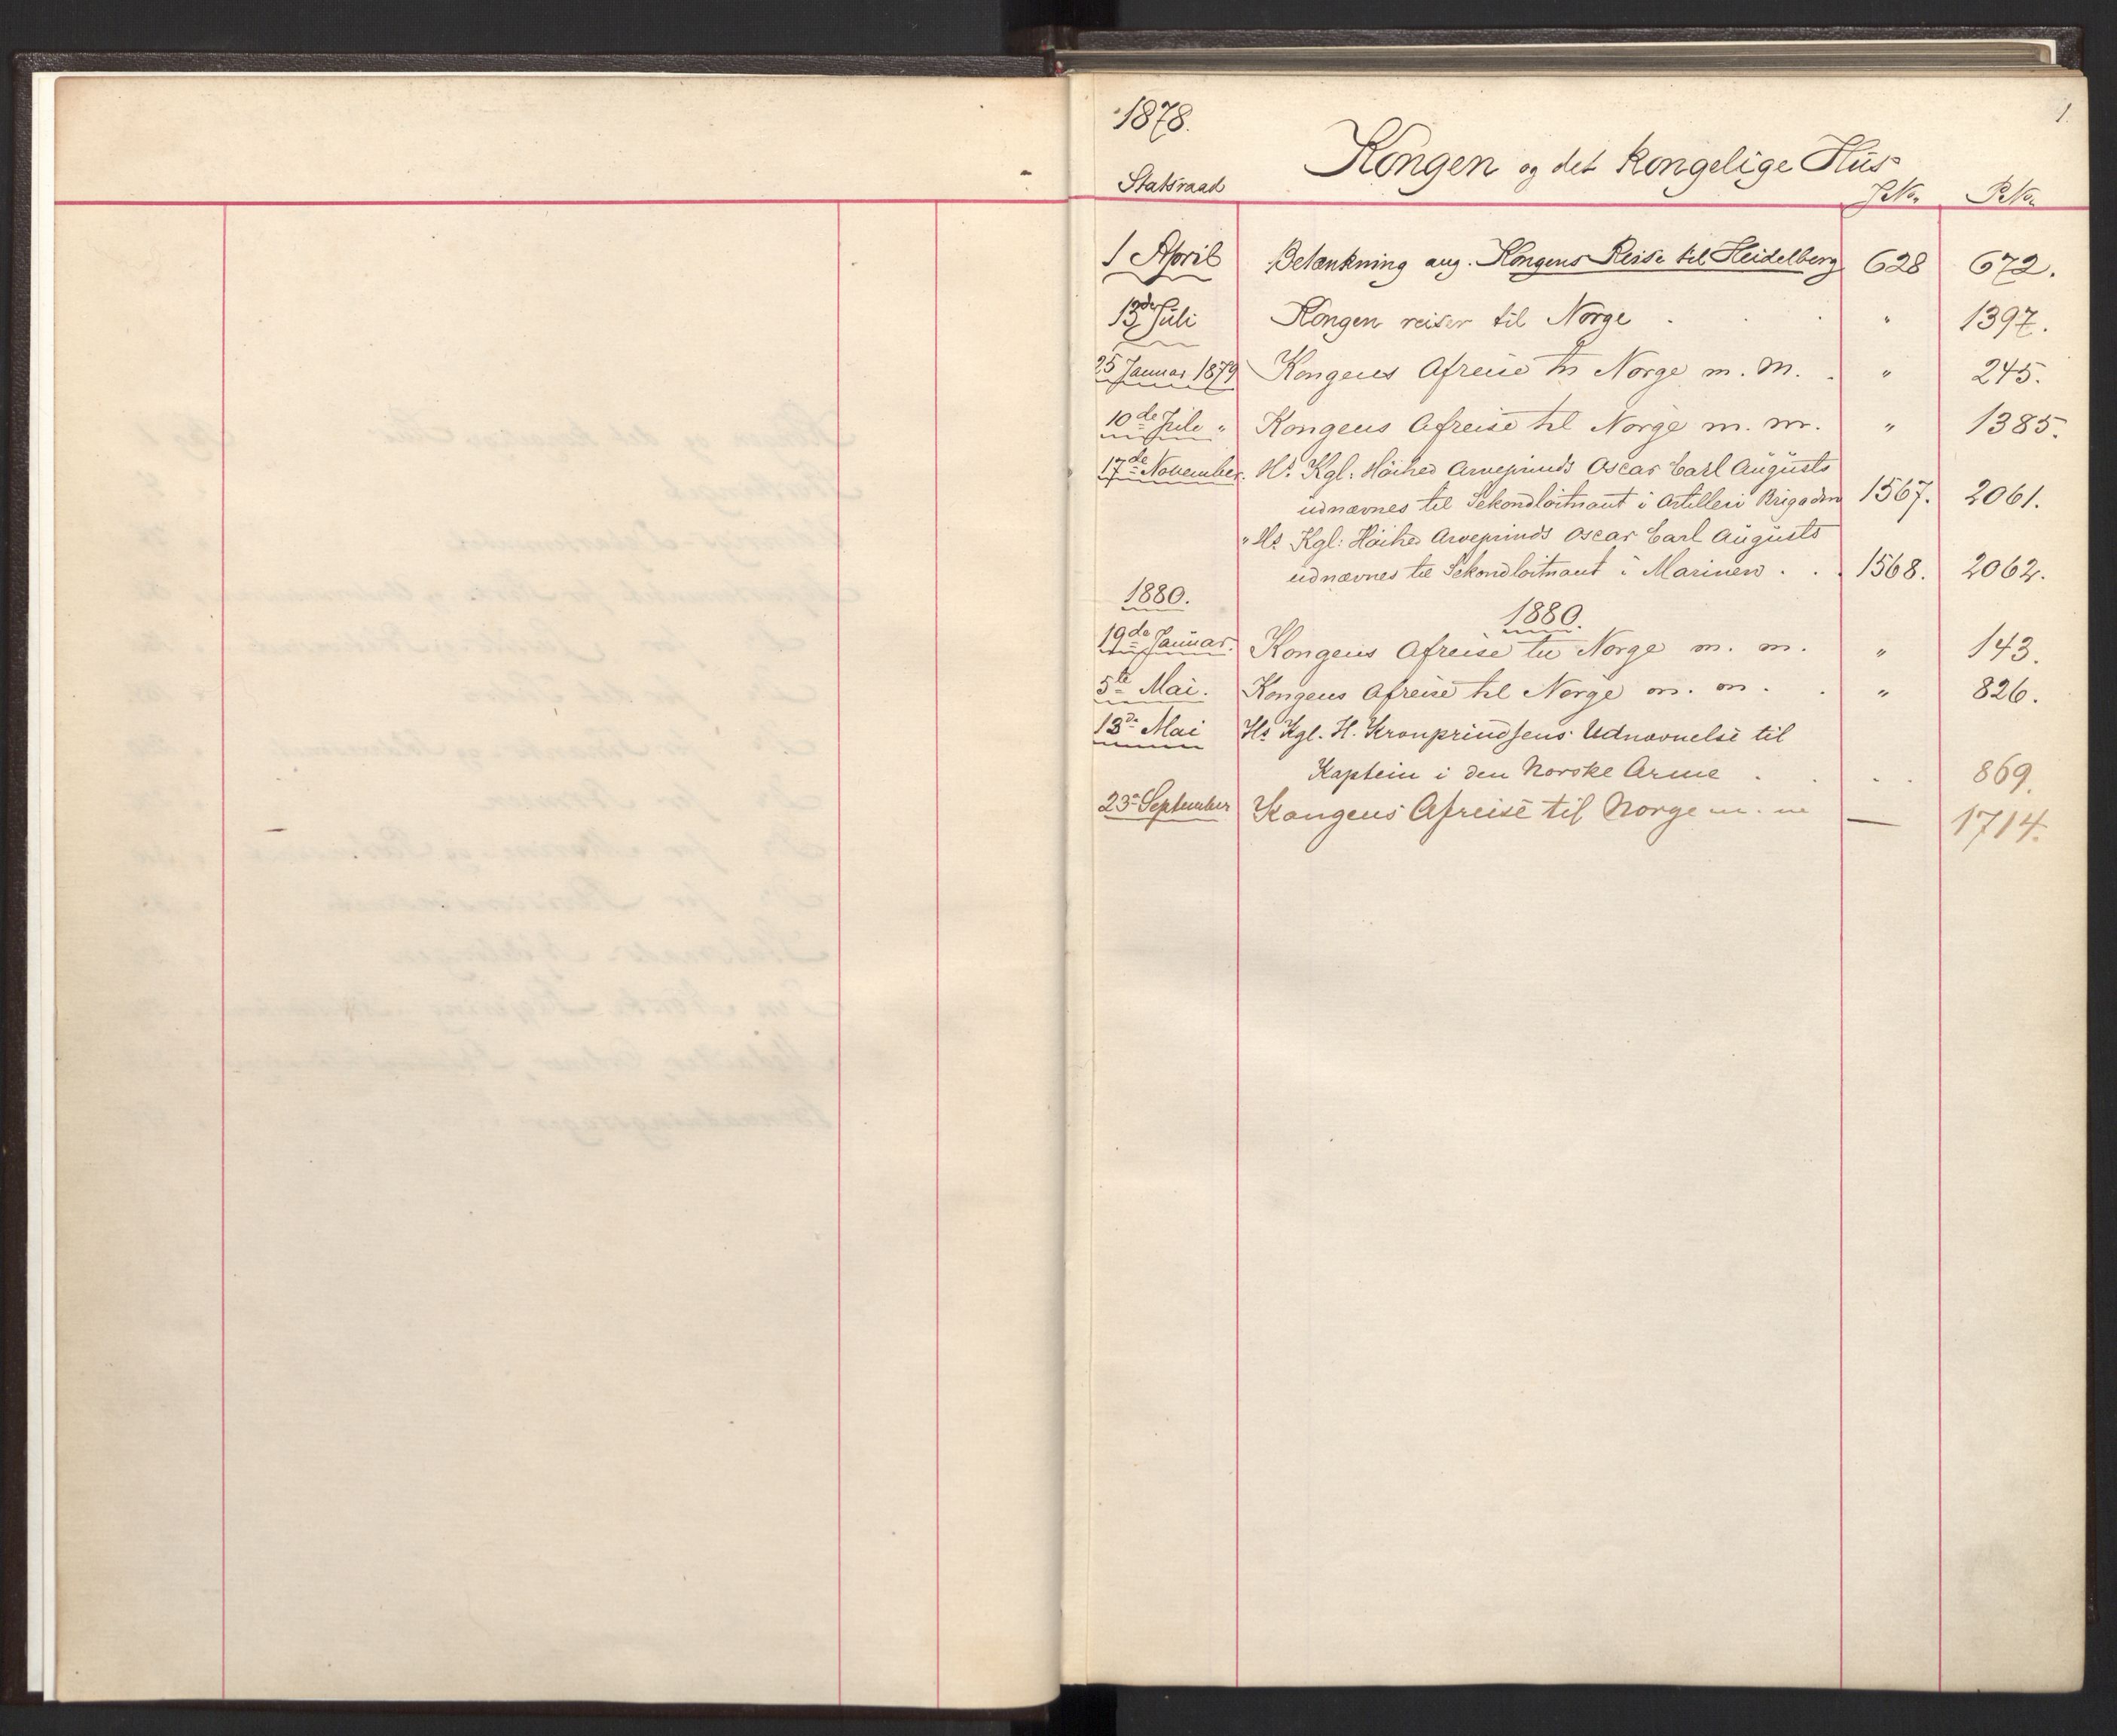 1878.
1.
Kongen og det kongelige Hus
Statsraad
J No.
P. No.
1 April Betænkning ang. Kongens Reise til Heidelberg 628 672.
13de Juli Kongen reiser til Norge . . . " 1397.
25 Januar 1879 Kongens Afreise til Norge m. m. . " 245.
10de Juli " Kongens Afreise til Norge m. m. " 1385.
17de November. Hs Kgl: Höihed Arveprinds Oscar Carl Augusts
udnævnes til Sekondløitnant i Artilleri Brigaden 1567. 2061.
" Hs Kgl: Höihed Arveprinds Oscar Carl Augusts
udnævnes til Sekondløitnant i Marinen . . . 1568. 2062.
1880.
1880.
19de Januar. Kongens Afreise til Norge m. m. " 143.
5te Mai. Kongens Afreise til Norge m. m. . " 826.
13de Mai Hs Kgl. H. Kronprindsens Udnævnelse til
Kaptein i den Norske Arme . . . . 869.
23de September Kongens Afreise til Norge m. m — 1714.